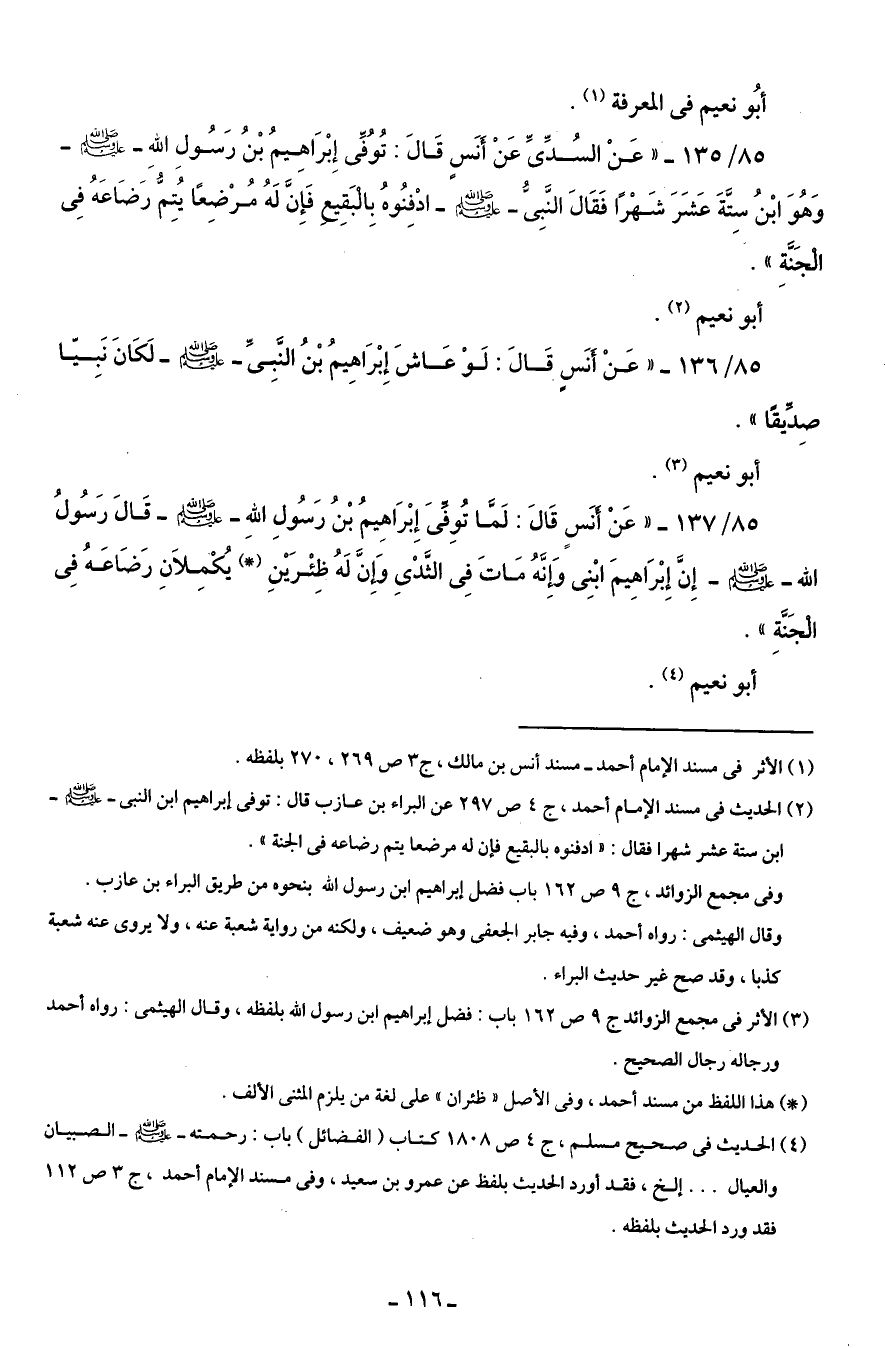 أبُو نعيم فى المعرفة (١) .
٨٥/ ١٣٥ ـ « عَـنْ السُـدِّىِّ عَنْ أَنَسٍ قَـالَ : تُوُفِّى إِبْرَاهِـيمُ بْنُ رَسُـولِ اللهِ ـ ﷺ ـ
وَهُوَ ابْنُ سِتَّةَ عَشَرَ شَـهْرًا فَقَالَ النَّبِىُّ ـ ﷺ ـ ادْفِنُوهُ بِالْبَقِيعِ فَإِنَّ لَهُ مُـرْضِعًا يُتِمُّ رَضَاعَهُ فِى
الْجَنَّةِ » .
أبو نعيم (٢) .
٨٥/ ١٣٦ ـ « عَـنْ أَنَسٍ قَـالَ : لَـوْ عَـاشَ إِبْرَاهِيمُ بْنُ النَّبِـىِّ ـ ﷺ ـ لَكَانَ نَبِـيّـا
صِدِّيقًا » .
أبو نعيم (٣) .
٨٥/ ١٣٧ ـ « عَنْ أَنَسٍ قَالَ : لَمَّـا تُوفِّىَ إِبْرَاهِيمُ بْنُ رَسُولِ اللهِ ـ ﷺ ـ قَـالَ رَسُولُ
الله ـ ﷺ ـ إِنَّ إِبْرَاهِيمَ ابْنِى وَإِنَّهُ مَـاتَ فِى الثَّدْىِ وَإِنَّ لَهُ ظِئْـرَيْنِ (*) يُكْمِـلاَنِ رَضَاعَـهُ فِى
الْجَنَّةِ » .
أبو نعيم (٤) .
(١) الأثر فى مسند الإمام أحمد ـ مسند أنس بن مالك ، ج٣ ص ٢٦٩ ، ٢٧٠ بلفظه .
(٢) الحديث فى مسند الإمـام أحمد ، ج ٤ ص ٢٩٧ عن البراء بن عـازب قال : توفى إبراهيم ابن النبى ـ ﷺ ـ
ابن ستة عشر شهرا فقال : « ادفنوه بالبقيع فإن له مرضعا يتم رضاعه فى الجنة » .
وفى مجمع الزوائد ، ج ٩ ص ١٦٢ باب فضل إبراهيم ابن رسول الله بنحوه من طريق البراء بن عازب .
وقال الهيثمى : رواه أحمد ، وفيه جابر الجعفى وهو ضعيف ، ولكنه من رواية شعبة عنه ، ولا يروى عنه شعبة
كذبا ، وقد صح غير حديث البراء .
(٣) الأثر فى مجمع الزوائد ج ٩ ص ١٦٢ باب : فضل إبراهيم ابن رسول الله بلفظه ، وقـال الهيثمى : رواه أحمد
ورجاله رجال الصحيح .
(*) هذا اللفظ من مسند أحمد ، وفى الأصل « ظئران » على لغة من يلزم المثنى الألف .
(٤) الحديث فى صـحيح مسلـم ، ج ٤ ص ١٨٠٨ كـتـاب ( الفـضائل ) باب : رحـمته ـ ﷺ ـ الـصبيان
والعيال ... إلـخ ، فقـد أورد الحديث بلفظ عن عمرو بن سعيد ، وفى مـسند الإمام أحمد ، ج ٣ ص ١١٢
فقد ورد الحديث بلفظه .
ـ ١١٦ ـ